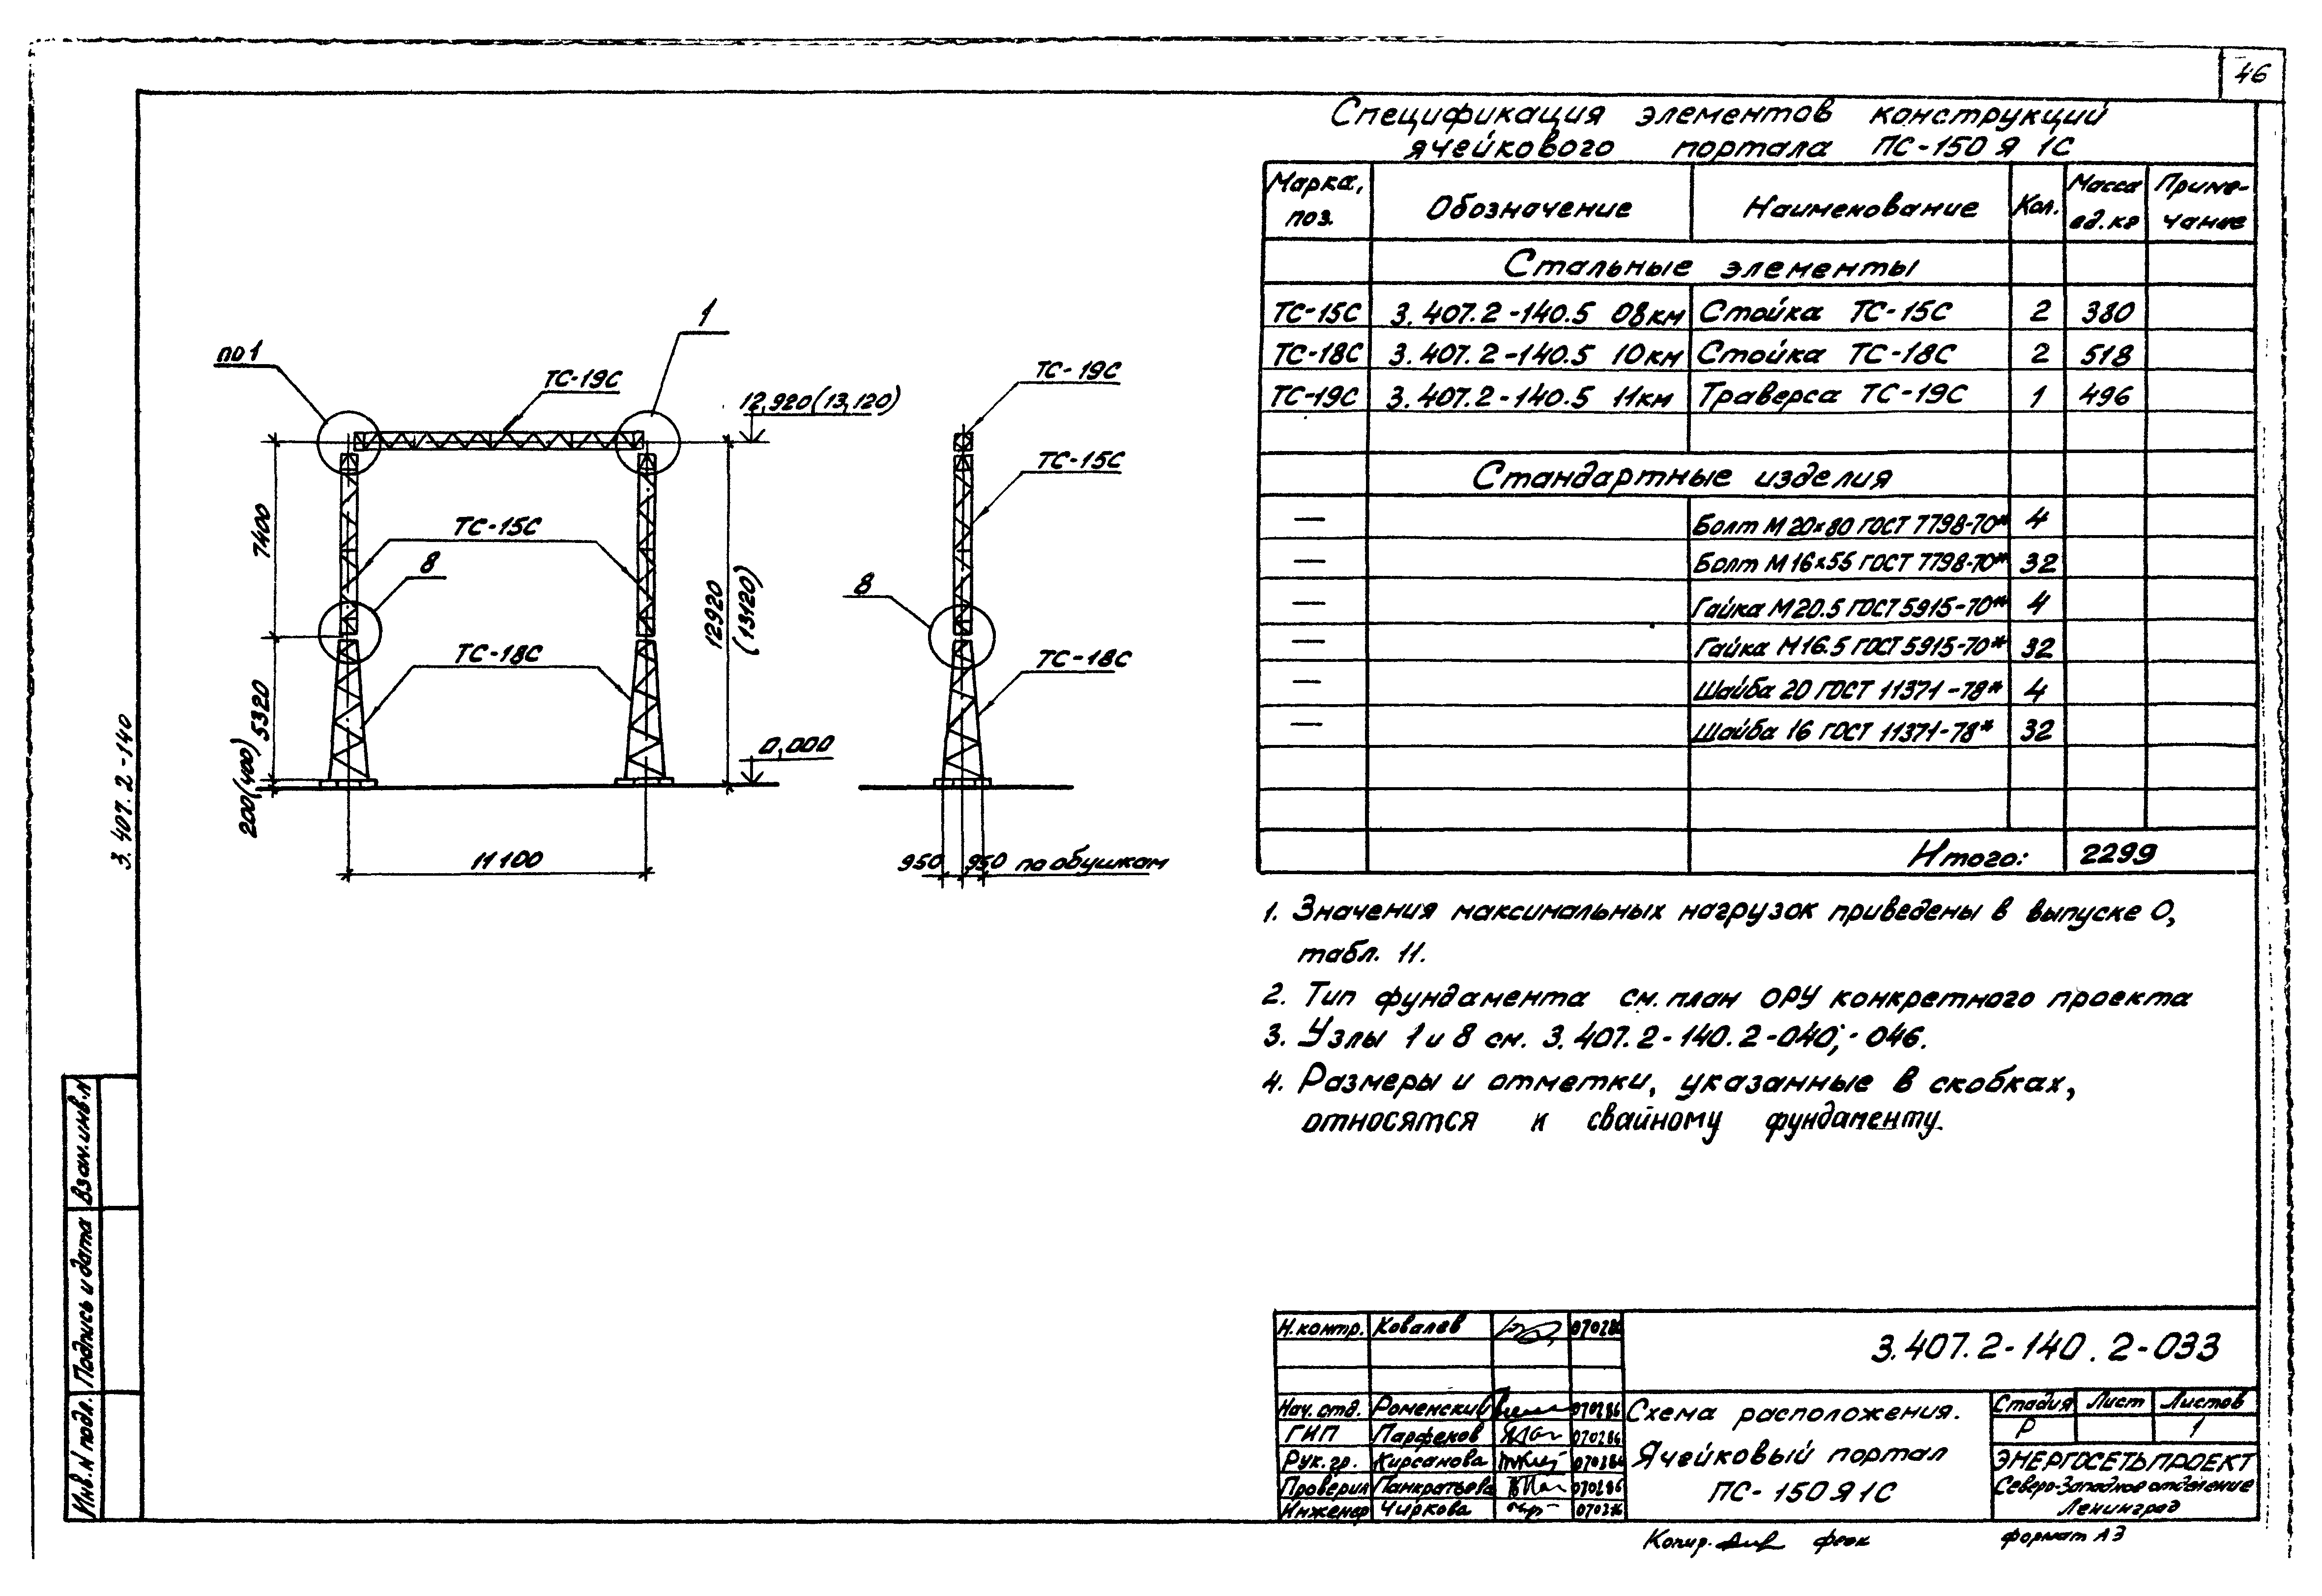 46
Спецификация элементов конструкций
ячейкового портала ПС-150 Я 1С
Марка, поз. Обозначение Наименование Кол. Масса ед.кг Приме-чание
Стальные элементы
ТС-15С 3.407.2-140.5 08км Стойка ТС-15С 2 380
ТС-18С 3.407.2-140.5 10км Стойка ТС-18С 2 518
ТС-19С 3.407.2-140.5 11км Траверса ТС-19С 1 496
Стандартные изделия
— Болт М20×80 ГОСТ 7798-70* 4
— Болт М16×55 ГОСТ 7798-70* 32
— Гайка М20.5 ГОСТ 5915-70* 4
— Гайка М16.5 ГОСТ 5915-70* 32
— Шайба 20 ГОСТ 11371-78* 4
— Шайба 16 ГОСТ 11371-78* 32
Итого: 2299
1. Значения максимальных нагрузок приведены в выпуске 0,
табл. 11.
2. Тип фундамента см. план ОРУ конкретного проекта
3. Узлы 1 и 8 см. 3.407.2-140.2-040; -046.
4. Размеры и отметки, указанные в скобках,
относятся к свайному фундаменту.
по 1
1
ТС-19С
12,920 (13,120)
ТС-15С
8
ТС-18С
7400
5320
200(400)
12920
(13120)
0,000
11100
ТС-19С
ТС-15С
8
ТС-18С
950 950 по обушкам
3.407.2-140
Взам.инв.N
Подпись и дата
Инв.N подл.
Н.контр. Ковалев 070286
Нач.отд. Роменский 070286
ГИП Парфенов 070286
Рук.гр. Кирсанова 070286
Проверил Панкратьева 070286
Инженер Чиркова 070286
3.407.2-140.2-033
Схема расположения.
Ячейковый портал
ПС-150Я1С
Стадия Лист Листов
Р 1
ЭНЕРГОСЕТЬПРОЕКТ
Северо-Западное отделение
Ленинград
Копир.
формат А3